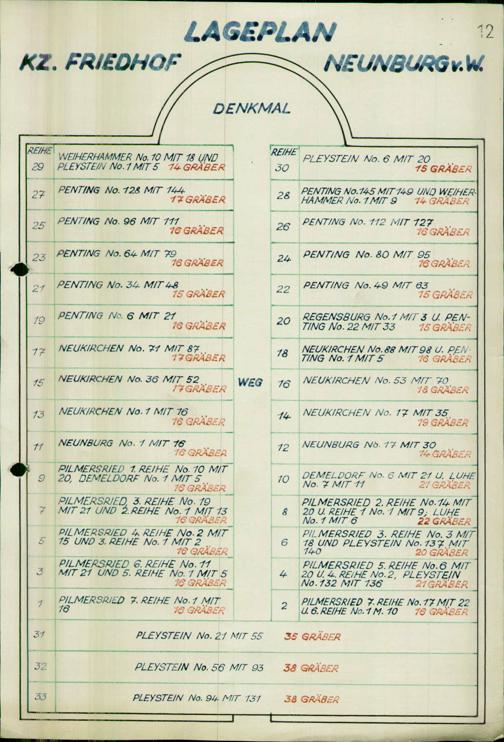 12
LAGEPLAN
KZ. FRIEDHOF NEUNBURG v. W.
DENKMAL
REIHE
29
WEIHERHAMMER No. 10 MIT 18 UND
PLEYSTEIN No. 1 MIT 5 14 GRÄBER
27
PENTING No. 128 MIT 144
17 GRÄBER
25
PENTING No. 96 MIT 111
16 GRÄBER
23
PENTING No. 64 MIT 79
16 GRÄBER
21
PENTING No. 34 MIT 48
15 GRÄBER
19
PENTING No. 6 MIT 21
16 GRÄBER
17
NEUKIRCHEN No. 71 MIT 87
17 GRÄBER
15
NEUKIRCHEN No. 36 MIT 52
17 GRÄBER
13
NEUKIRCHEN No. 1 MIT 16
16 GRÄBER
11
NEUNBURG No. 1 MIT 16
16 GRÄBER
9
PILMERSRIED 1. REIHE No. 10 MIT
20, DEMELDORF No. 1 MIT 5
16 GRÄBER
7
PILMERSRIED, 3. REIHE No. 19
MIT 21 UND 2. REIHE No. 1 MIT 13
16 GRÄBER
5
PILMERSRIED 4. REIHE No. 2 MIT
15 UND 3. REIHE No. 1 MIT 2
16 GRÄBER
3
PILMERSRIED 6. REIHE No. 11
MIT 21 UND 5. REIHE No. 1 MIT 5
16 GRÄBER
1
PILMERSRIED 7. REIHE No. 1 MIT
16 16 GRÄBER
WEG
REIHE
30
PLEYSTEIN No. 6 MIT 20
15 GRÄBER
28
PENTING No. 145 MIT 149 UND WEIHER-
HAMMER No. 1 MIT 9 14 GRÄBER
26
PENTING No. 112 MIT 127
16 GRÄBER
24
PENTING No. 80 MIT 95
16 GRÄBER
22
PENTING No. 49 MIT 63
15 GRÄBER
20
REGENSBURG No. 1 MIT 3 U. PEN-
TING No. 22 MIT 33 15 GRÄBER
18
NEUKIRCHEN No. 88 MIT 98 U. PEN
TING No. 1 MIT 5 16 GRÄBER
16
NEUKIRCHEN No. 53 MIT 70
18 GRÄBER
14
NEUKIRCHEN No. 17 MIT 35
19 GRÄBER
12
NEUNBURG No. 17 MIT 30
14 GRÄBER
10
DEMELDORF No. 6 MIT 21 U. LUHE
No. 7 MIT 11 21 GRÄBER
8
PILMERSRIED 2. REIHE No. 14 MIT
20 U. REIHE 1 No. 1 MIT 9; LUHE
No. 1 MIT 6 22 GRÄBER
6
PILMERSRIED 3. REIHE No. 3 MIT
18 UND PLEYSTEIN No. 137 MIT
140 20 GRÄBER
4
PILMERSRIED 5. REIHE No. 6 MIT
20 U. 4. REIHE No. 2, PLEYSTEIN
No. 132 MIT 136 21 GRÄBER
2
PILMERSRIED 7. REIHE No. 17 MIT 22
U. 6. REIHE No. 1 M. 10 16 GRÄBER
31 PLEYSTEIN No. 21 MIT 55 35 GRÄBER
32 PLEYSTEIN No. 56 MIT 93 38 GRÄBER
33 PLEYSTEIN No. 94 MIT 131 38 GRÄBER